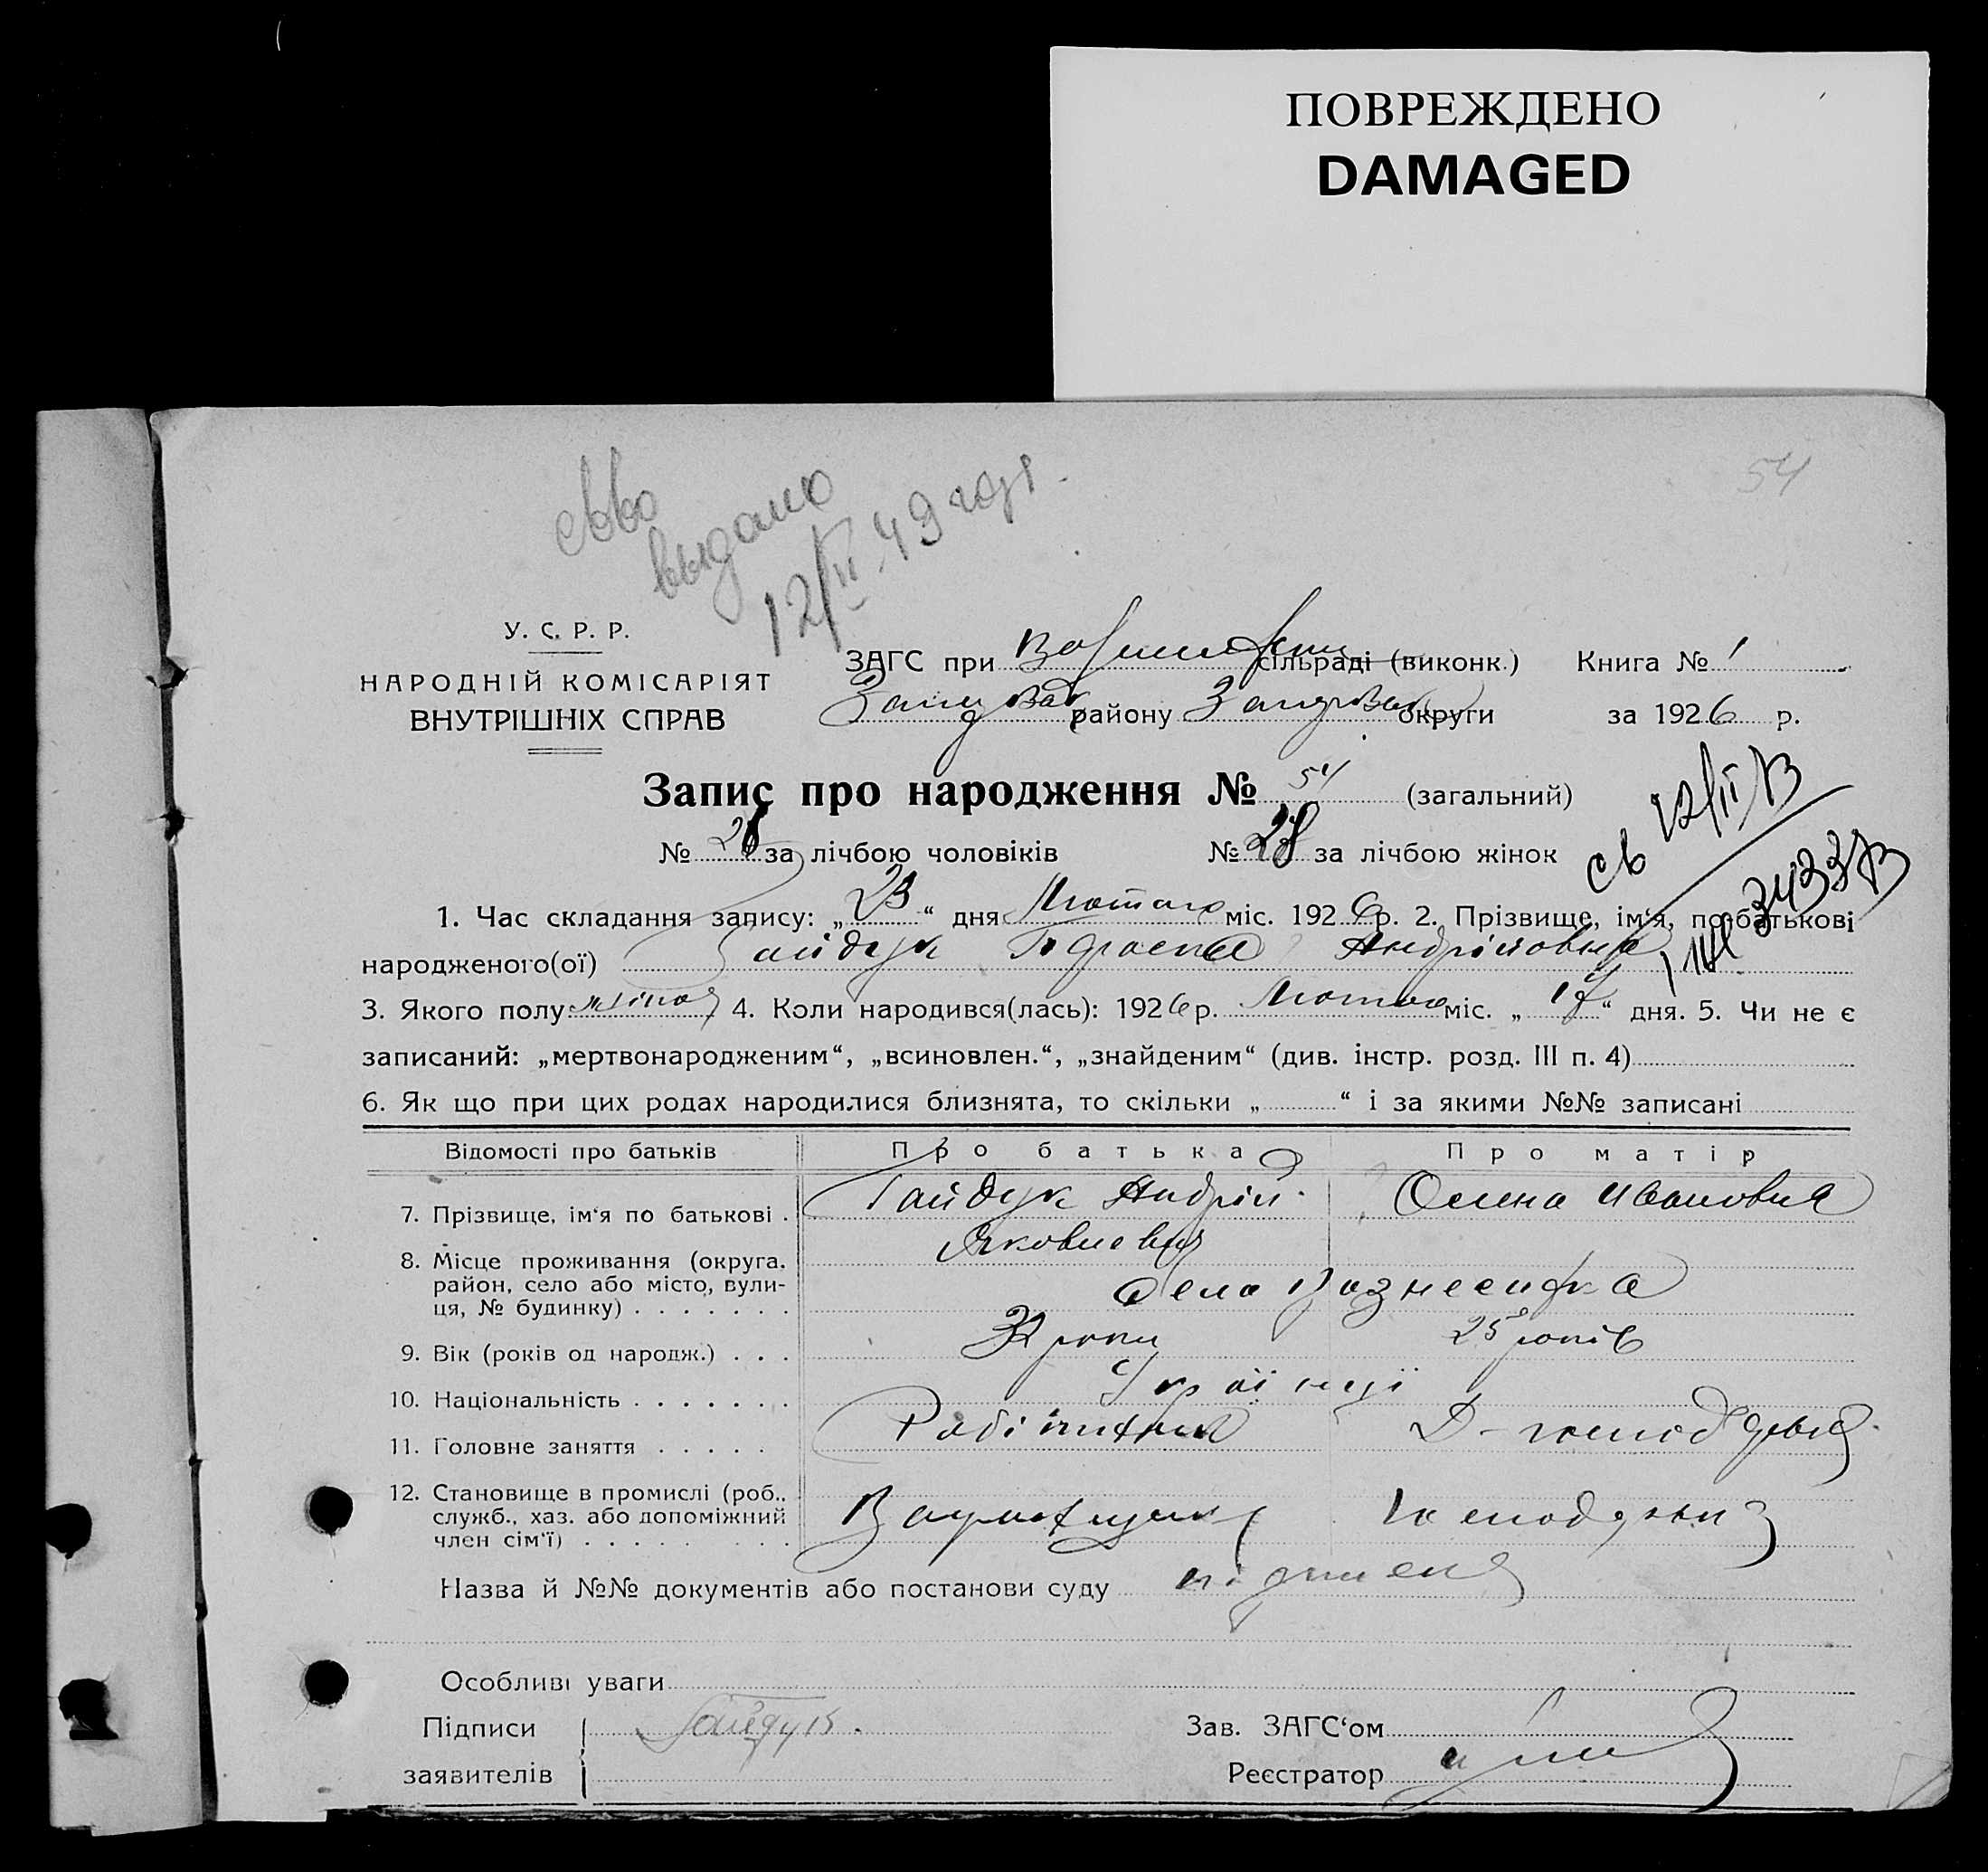 ПОВРЕЖДЕНО
DAMAGED
54
выдано
12/II 49 года.
У. С. Р. Р.
НАРОДНІЙ КОМІСАРІЯТ
ВНУТРІШНІХ СПРАВ
ЗАГС при сільраді (виконк.) Книга № 1
району округи за 1926 р.
Запис про народження № 54 (загальний)
№ за лічбою чоловіків № 28 за лічбою жінок
св 12/II 73
1. Час складання запису: „23“ дня Лютого міс. 1926 р. 2. Прізвище, ім‘я, по-батькові
народженого(ої) Гайдук Андріївна
3. Якого полу жіноч 4. Коли народився(лась): 1926 р. Лютого міс. „17“ дня. 5. Чи не є
записаний: „мертвонародженим“, „всиновлен.“, „знайденим“ (див. інстр. розд. III п. 4)
6. Як що при цих родах народилися близнята, то скільки „ “ і за якими №№ записані
Відомості про батьків Про батька Про матір
7. Прізвище, ім‘я по батькові . Гайдук Андрій Олена Ивановна
Яковлевич
8. Місце проживання (округа,
район, село або місто, вули-
ця, № будинку) . . . . . . . село Вознесенка
9. Вік (років од народж.) . . . 32 роки 25 років
10. Національність . . . . . . . Українці
11. Головне заняття . . . . . Робітник Д-господарка
12. Становище в промислі (роб.,
служб., хаз. або допоміжний
член сім‘ї) . . . . . . . .
Назва й №№ документів або постанови суду
Особливі уваги
Підписи Гайдук. Зав. ЗАГС‘ом
заявителів Реєстратор